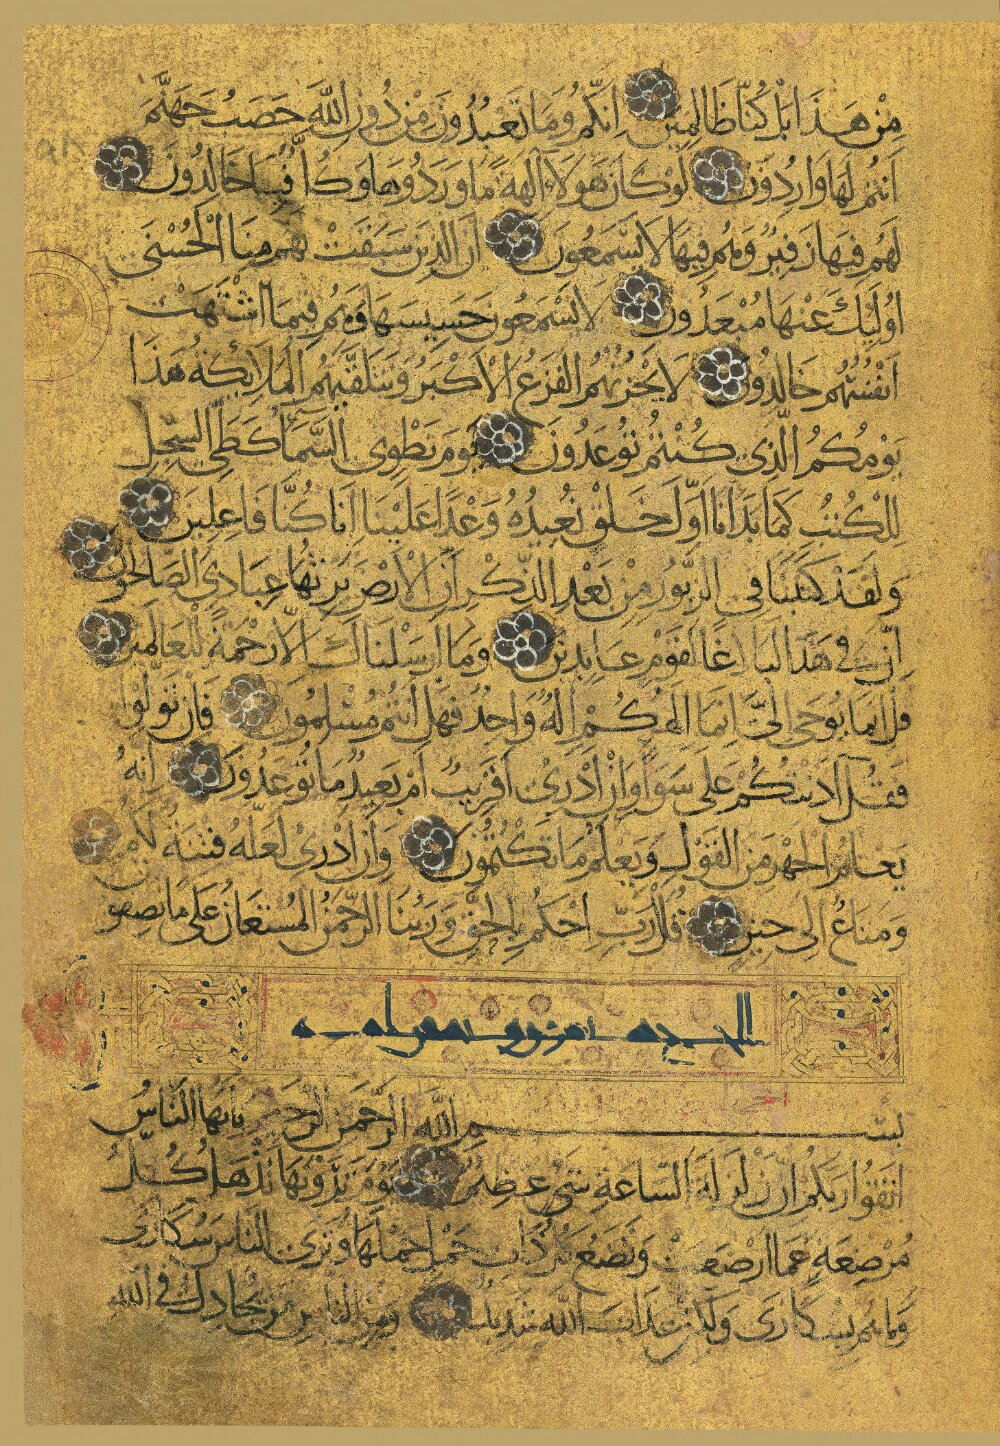 مِنْ هَذَا بَلْ كُنَّا ظَالِمِينَ اِنَّكُمْ وَمَا تَعْبُدُونَ مِنْ دُونِ اللَّهِ حَصَبُ جَهَنَّمَ
اَنْتُمْ لَهَا وَارِدُونَ لَوْ كَانَ هَؤُلَاءِ آلِهَةً مَا وَرَدُوهَا وَكُلٌّ فِيهَا خَالِدُونَ
لَهُمْ فِيهَا زَفِيرٌ وَهُمْ فِيهَا لَا يَسْمَعُونَ اِنَّ الَّذِينَ سَبَقَتْ لَهُمْ مِنَّا الْحُسْنَى
اُولَئِكَ عَنْهَا مُبْعَدُونَ لَا يَسْمَعُونَ حَسِيسَهَا وَهُمْ فِيمَا اشْتَهَتْ
اَنْفُسُهُمْ خَالِدُونَ لَا يَحْزُنُهُمُ الْفَزَعُ الْاَكْبَرُ وَتَتَلَقَّيهُمُ الْمَلَائِكَةُ هَذَا
يَوْمُكُمُ الَّذِي كُنْتُمْ تُوعَدُونَ يَوْمَ نَطْوِي السَّمَاءَ كَطَيِّ السِّجِلِّ
لِلْكُتُبِ كَمَا بَدَاْنَا اَوَّلَ خَلْقٍ نُعِيدُهُ وَعْدًا عَلَيْنَا اِنَّا كُنَّا فَاعِلِينَ
وَلَقَدْ كَتَبْنَا فِي الزَّبُورِ مِنْ بَعْدِ الذِّكْرِ اَنَّ الْاَرْضَ يَرِثُهَا عِبَادِيَ الصَّالِحُونَ
اِنَّ فِي هَذَا لَبَلَاغًا لِقَوْمٍ عَابِدِينَ وَمَا اَرْسَلْنَاكَ اِلَّا رَحْمَةً لِلْعَالَمِينَ
قُلْ اِنَّمَا يُوحَى اِلَيَّ اَنَّمَا اِلَهُكُمْ اِلَهٌ وَاحِدٌ فَهَلْ اَنْتُمْ مُسْلِمُونَ فَاِنْ تَوَلَّوْا
فَقُلْ آذَنْتُكُمْ عَلَى سَوَاءٍ وَاِنْ اَدْرِي اَقَرِيبٌ اَمْ بَعِيدٌ مَا تُوعَدُونَ اِنَّهُ
يَعْلَمُ الْجَهْرَ مِنَ الْقَوْلِ وَيَعْلَمُ مَا تَكْتُمُونَ وَاِنْ اَدْرِي لَعَلَّهُ فِتْنَةٌ لَكُمْ
وَمَتَاعٌ اِلَى حِينٍ قُلْ رَبِّ احْكُمْ بِالْحَقِّ وَرَبُّنَا الرَّحْمَنُ الْمُسْتَعَانُ عَلَى مَا تَصِفُونَ
بِسْمِ اللَّهِ الرَّحْمَنِ الرَّحِيمِ يَا اَيُّهَا النَّاسُ
اتَّقُوا رَبَّكُمْ اِنَّ زَلْزَلَةَ السَّاعَةِ شَيْءٌ عَظِيمٌ يَوْمَ تَرَوْنَهَا تَذْهَلُ كُلُّ
مُرْضِعَةٍ عَمَّا اَرْضَعَتْ وَتَضَعُ كُلُّ ذَاتِ حَمْلٍ حَمْلَهَا وَتَرَى النَّاسَ سُكَارَى
وَمَا هُمْ بِسُكَارَى وَلَكِنَّ عَذَابَ اللَّهِ شَدِيدٌ وَمِنَ النَّاسِ مَنْ يُجَادِلُ فِي اللَّهِ